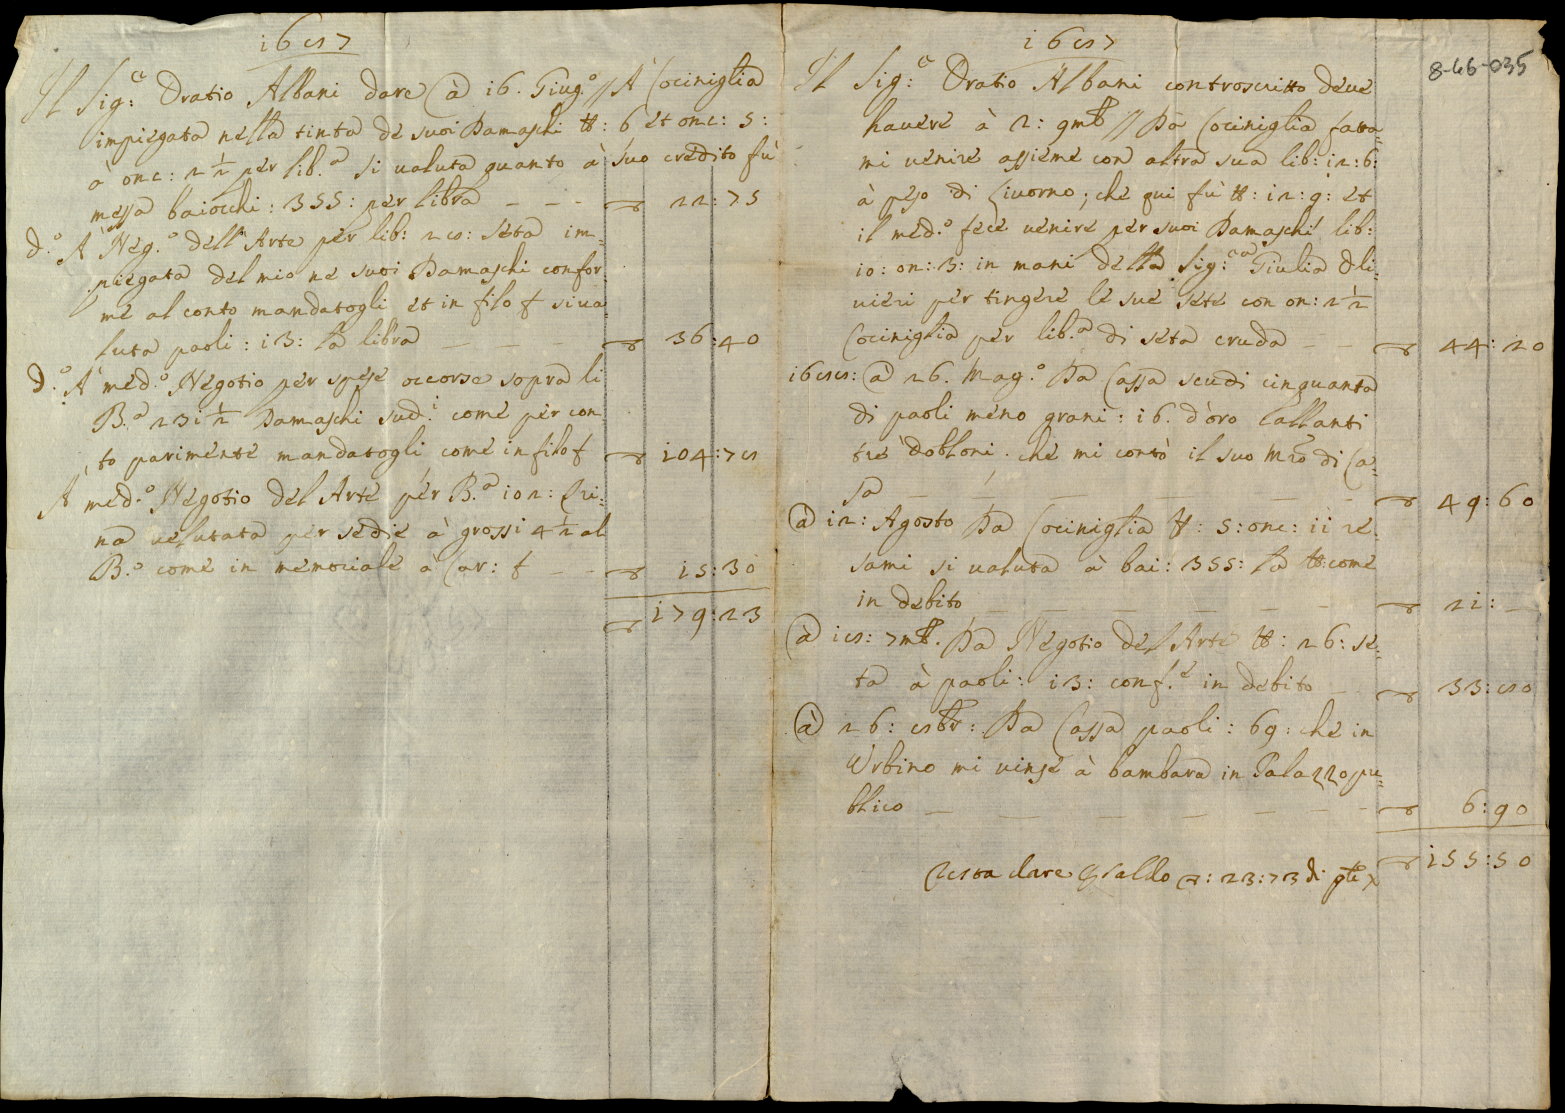 1687
Il Sig.r Oratio Albani dare à 16. Giug.o // À Cociniglia
impiegata nella tinta de suoi Damaschi ℔: 6 et onc: 5:
à onc: 2½ per lib.a si valuta quanto à suo credito fù
messa baiocchi: 355: per libra - - - 22:75
D.o À Neg.o dell'Arte per lib: 28: seta im=
piegata del mio ne suoi Damaschi confor
me al conto mandatogli et in filo f si va
luta paoli: 13: la libra - - - 36:40
D.o À med.o Negotio per spese occorse sopra li
B.a 231½ Damaschi sud.i come per con
to parimente mandatogli come in filo f 104:78
À med.o Negotio del Arte per B.a 102: Tri:
na vellutata per sedie à grossi 4½ al
B.o come in memoriale à Car: f - - 15:30
179:23
1687
8-66-035
Il Sig.r Oratio Albani controscritto deve
havere à 2: 9mb // Da Cociniglia fatta
mi venire assieme con altra sua lib: 12:6:
à peso di Livorno; che qui fù ℔: 12:9: et
il med.o fece venire per suoi Damaschi lib:
10: on: 3: in mani della Sig.ra Giulia Oli:
vieri per tingere le sue sete con on: 2½
Cociniglia per lib.a di seta cruda - - 44:20
1688: à 26. Mag.o Da Cassa scudi cinquanta
di paoli meno grani: 16. d'oro Callanti
tre Dobloni. che mi contò il suo Mro di Ca=
sa - - - - - - - 49:60
à 12: Agosto Da Cociniglia ℔: 5: onc: 11 re:
sami si valuta à bai: 355: la ℔: come
in debito - - - - - - 21:-
à 18: 7mb. Da Negotio del Arte ℔: 26: se=
ta à paoli: 13: conf.e in debito - 33:80
à 26: 8br: Da Cassa paoli: 69: che in
Urbino mi vinse à bambara in Palazzo pu=
blico - - - - - - 6:90
155:50
Resta dare Saldo : 23:73 di